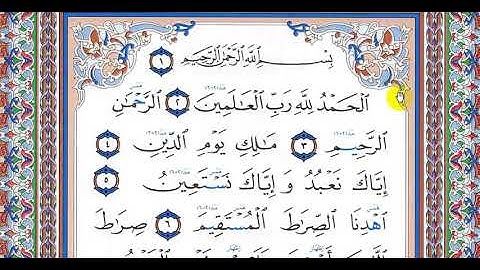 بِسْمِ اللَّهِ الرَّحْمَٰنِ الرَّحِيمِ ١
الْحَمْدُ لِلَّهِ رَبِّ الْعَالَمِينَ ٢ الرَّحْمَٰنِ
الرَّحِيمِ ٣ مَالِكِ يَوْمِ الدِّينِ ٤
إِيَّاكَ نَعْبُدُ وَ إِيَّاكَ نَسْتَعِينُ ٥
اهْدِنَا الصِّرَاطَ الْمُسْتَقِيمَ ٦ صِرَاطَ